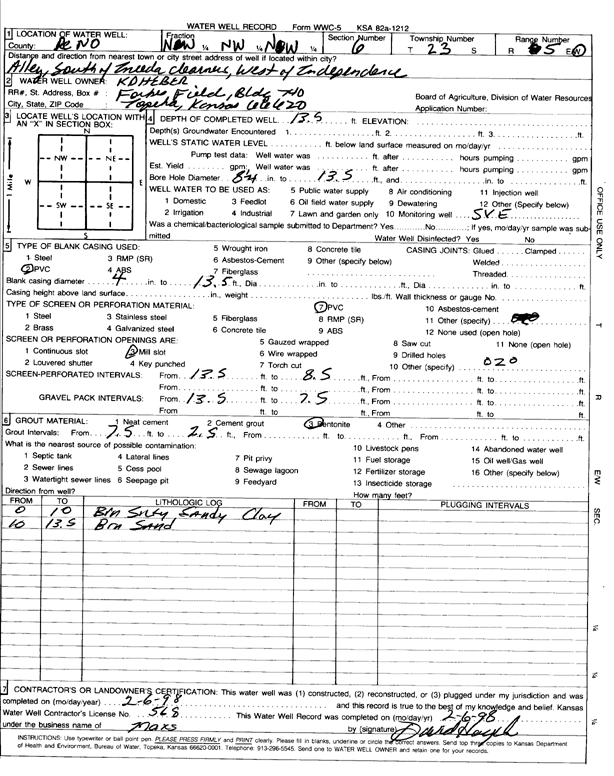 WATER WELL RECORD Form WWC-5 KSA 82a-1212
1 LOCATION OF WATER WELL: Fraction Section Number Township Number Range Number
County: Reno NW ¼ NW ¼ NW ¼ 6 T 23 S R 5 E W
Distance and direction from nearest town or city street address of well if located within city?
Alley, South of Ineeda cleaners, West of Independence
2 WATER WELL OWNER: KDHEBER
RR#, St. Address, Box # : Forbes Field, Bldg 740 Board of Agriculture, Division of Water Resources
City, State, ZIP Code : Topeka, Kansas 66620 Application Number:
3 LOCATE WELL'S LOCATION WITH AN "X" IN SECTION BOX:
N
NW NE
W E
SW SE
S
1 Mile
4 DEPTH OF COMPLETED WELL 13.5 ft. ELEVATION:
Depth(s) Groundwater Encountered 1. ft. 2. ft. 3. ft.
WELL'S STATIC WATER LEVEL ft. below land surface measured on mo/day/yr
Pump test data: Well water was ft. after hours pumping gpm
Est. Yield gpm; Well water was ft. after hours pumping gpm
Bore Hole Diameter 8¼ in. to 13.5 ft., and in. to ft.
WELL WATER TO BE USED AS: 5 Public water supply 8 Air conditioning 11 Injection well
1 Domestic 3 Feedlot 6 Oil field water supply 9 Dewatering 12 Other (Specify below)
2 Irrigation 4 Industrial 7 Lawn and garden only 10 Monitoring well SVE
Was a chemical/bacteriological sample submitted to Department? Yes No ; If yes, mo/day/yr sample was submitted
Water Well Disinfected? Yes No
5 TYPE OF BLANK CASING USED: 5 Wrought iron 8 Concrete tile CASING JOINTS: Glued Clamped
1 Steel 3 RMP (SR) 6 Asbestos-Cement 9 Other (specify below) Welded
2 PVC 4 ABS 7 Fiberglass Threaded
Blank casing diameter 4 in. to 13.5 ft., Dia in. to ft., Dia in. to ft.
Casing height above land surface in., weight lbs./ft. Wall thickness or gauge No.
TYPE OF SCREEN OR PERFORATION MATERIAL: 7 PVC 10 Asbestos-cement
1 Steel 3 Stainless steel 5 Fiberglass 8 RMP (SR) 11 Other (specify)
2 Brass 4 Galvanized steel 6 Concrete tile 9 ABS 12 None used (open hole)
SCREEN OR PERFORATION OPENINGS ARE: 5 Gauzed wrapped 8 Saw cut 11 None (open hole)
1 Continuous slot 3 Mill slot 6 Wire wrapped 9 Drilled holes
2 Louvered shutter 4 Key punched 7 Torch cut 10 Other (specify) 020
SCREEN-PERFORATED INTERVALS: From 13.5 ft. to 8.5 ft., From ft. to ft.
From ft. to ft., From ft. to ft.
GRAVEL PACK INTERVALS: From 13.5 ft. to 7.5 ft., From ft. to ft.
From ft. to ft., From ft. to ft.
6 GROUT MATERIAL: 1 Neat cement 2 Cement grout 3 Bentonite 4 Other
Grout Intervals: From 7.5 ft. to 2.5 ft., From ft. to ft., From ft. to ft.
What is the nearest source of possible contamination: 10 Livestock pens 14 Abandoned water well
1 Septic tank 4 Lateral lines 7 Pit privy 11 Fuel storage 15 Oil well/Gas well
2 Sewer lines 5 Cess pool 8 Sewage lagoon 12 Fertilizer storage 16 Other (specify below)
3 Watertight sewer lines 6 Seepage pit 9 Feedyard 13 Insecticide storage
Direction from well? How many feet?
FROM TO LITHOLOGIC LOG FROM TO PLUGGING INTERVALS
0 10 Brn Silty Sandy Clay
10 13.5 Brn Sand
7 CONTRACTOR'S OR LANDOWNER'S CERTIFICATION: This water well was (1) constructed, (2) reconstructed, or (3) plugged under my jurisdiction and was
completed on (mo/day/year) 2-6-98 and this record is true to the best of my knowledge and belief. Kansas
Water Well Contractor's License No. 568 This Water Well Record was completed on (mo/day/yr) 2-6-98
under the business name of Maxs by (signature)
INSTRUCTIONS: Use typewriter or ball point pen. PLEASE PRESS FIRMLY and PRINT clearly. Please fill in blanks, underline or circle the correct answers. Send top three copies to Kansas Department
of Health and Environment, Bureau of Water, Topeka, Kansas 66620-0001. Telephone: 913-296-5545. Send one to WATER WELL OWNER and retain one for your records.
OFFICE USE ONLY
T
R
E/W
SEC.
¼
¼
¼